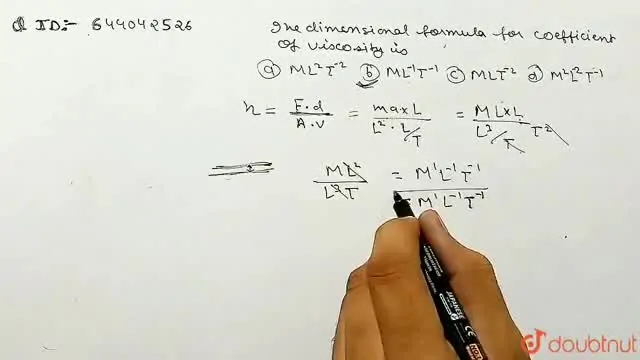 Q ID:- 644042526
The dimensional formula for coefficient
of viscosity is
(a) ML²T⁻² (b) ML⁻¹T⁻¹ (c) MLT⁻² (d) M²L²T⁻¹
η = F.d / A.V = ma×L / L².L/T = ML×L / L²/T T²
ML² / L³T = M¹L⁻¹T⁻¹
= M¹L⁻¹T⁻¹
doubtnut